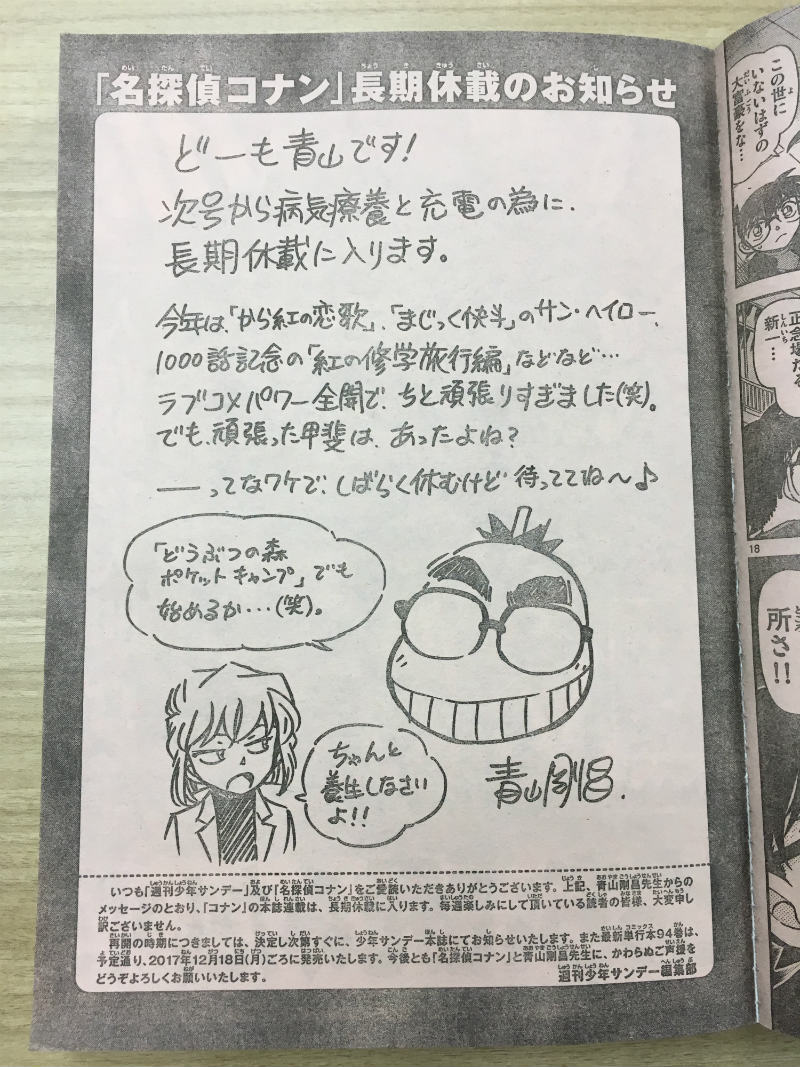 「名探偵コナン」長期休載のお知らせ
どーも青山です!
次号から病気療養と充電の為に、
長期休載に入ります。
今年は、「から紅の恋歌」、「まじっく快斗」のサン・ヘイロー、
1000話記念の「紅の修学旅行編」などなど…
ラブコメパワー全開で、ちと頑張りすぎました(笑)。
でも、頑張った甲斐は、あったよね?
――ってなワケで、しばらく休むけど 待っててね〜♪
「どうぶつの森
ポケットキャンプ」でも
始めるか…(笑)。
ちゃんと
養生しなさい
よ!!
青山剛昌.
いつも「週刊少年サンデー」及び「名探偵コナン」をご愛読いただきありがとうございます。上記、青山剛昌先生からの
メッセージのとおり、「コナン」の本誌連載は、長期休載に入ります。毎週楽しみにして頂いている読者の皆様、大変申し
訳ございません。
再開の時期につきましては、決定し次第すぐに、少年サンデー本誌にてお知らせいたします。また最新単行本94巻は、
予定通り、2017年12月18日(月)ごろに発売いたします。今後とも「名探偵コナン」と青山剛昌先生に、かわらぬご声援を
どうぞよろしくお願いいたします。
週刊少年サンデー編集部
この世に
いないはずの
大富豪をな…
正念場だろ
新一…
18
所さ!!